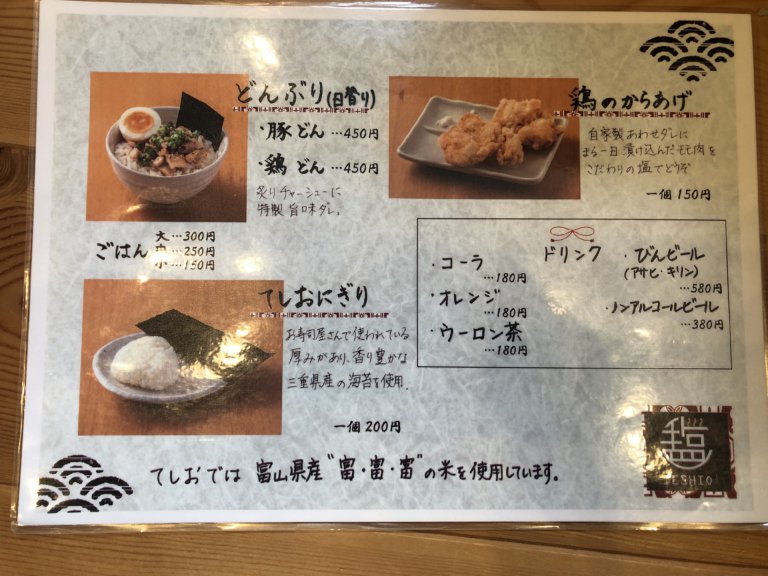 どんぶり(日替り)
・豚どん …450円
・鶏どん …450円
炙りチャーシューに
特製旨味ダレ。
ごはん
大…300円
中…250円
小…150円
てしおにぎり
お寿司屋さんで使われている
厚みがあり、香り豊かな
三重県産の海苔を使用
一個 200円
鶏のからあげ
自家製あわせダレに
まる一日漬け込んだモモ肉を
こだわりの塩でどうぞ
一個 150円
ドリンク
・コーラ
…180円
・オレンジ
…180円
・ウーロン茶
…180円
・びんビール
(アサヒ・キリン)
…580円
・ノンアルコールビール
…380円
てしおでは 富山県産"富・富・富"の米を使用しています。
塩
TESHIO